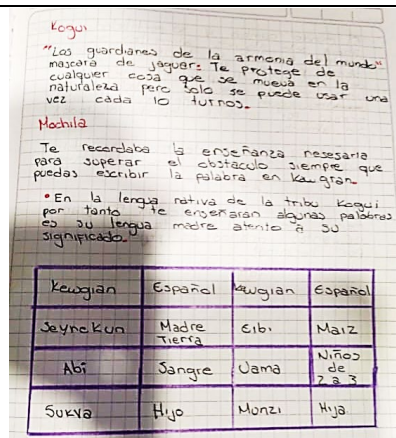 Kogui
"Los guardianes de la armonia del mundo"
mascara de jaguar: Te protege de
cualquier cosa que se mueva en la
naturaleza pero solo se puede usar una
vez cada 10 turnos.
Mochila
Te recordaba la enseñanza nesesaria
para superar el obstaculo siempre que
puedas escribir la palabra en Kawgian.
• En la lengua nativa de la tribu Kogui
por tanto te enseñaran algunas palabras
es su lengua madre atento a su
significado.
Kewgian Español Kewgian Español
Seyne Kun Madre Tierra Eibi Maiz
Abi Sangre Uama Niños de 2 a 3
Sukva Hijo Munzi Hija